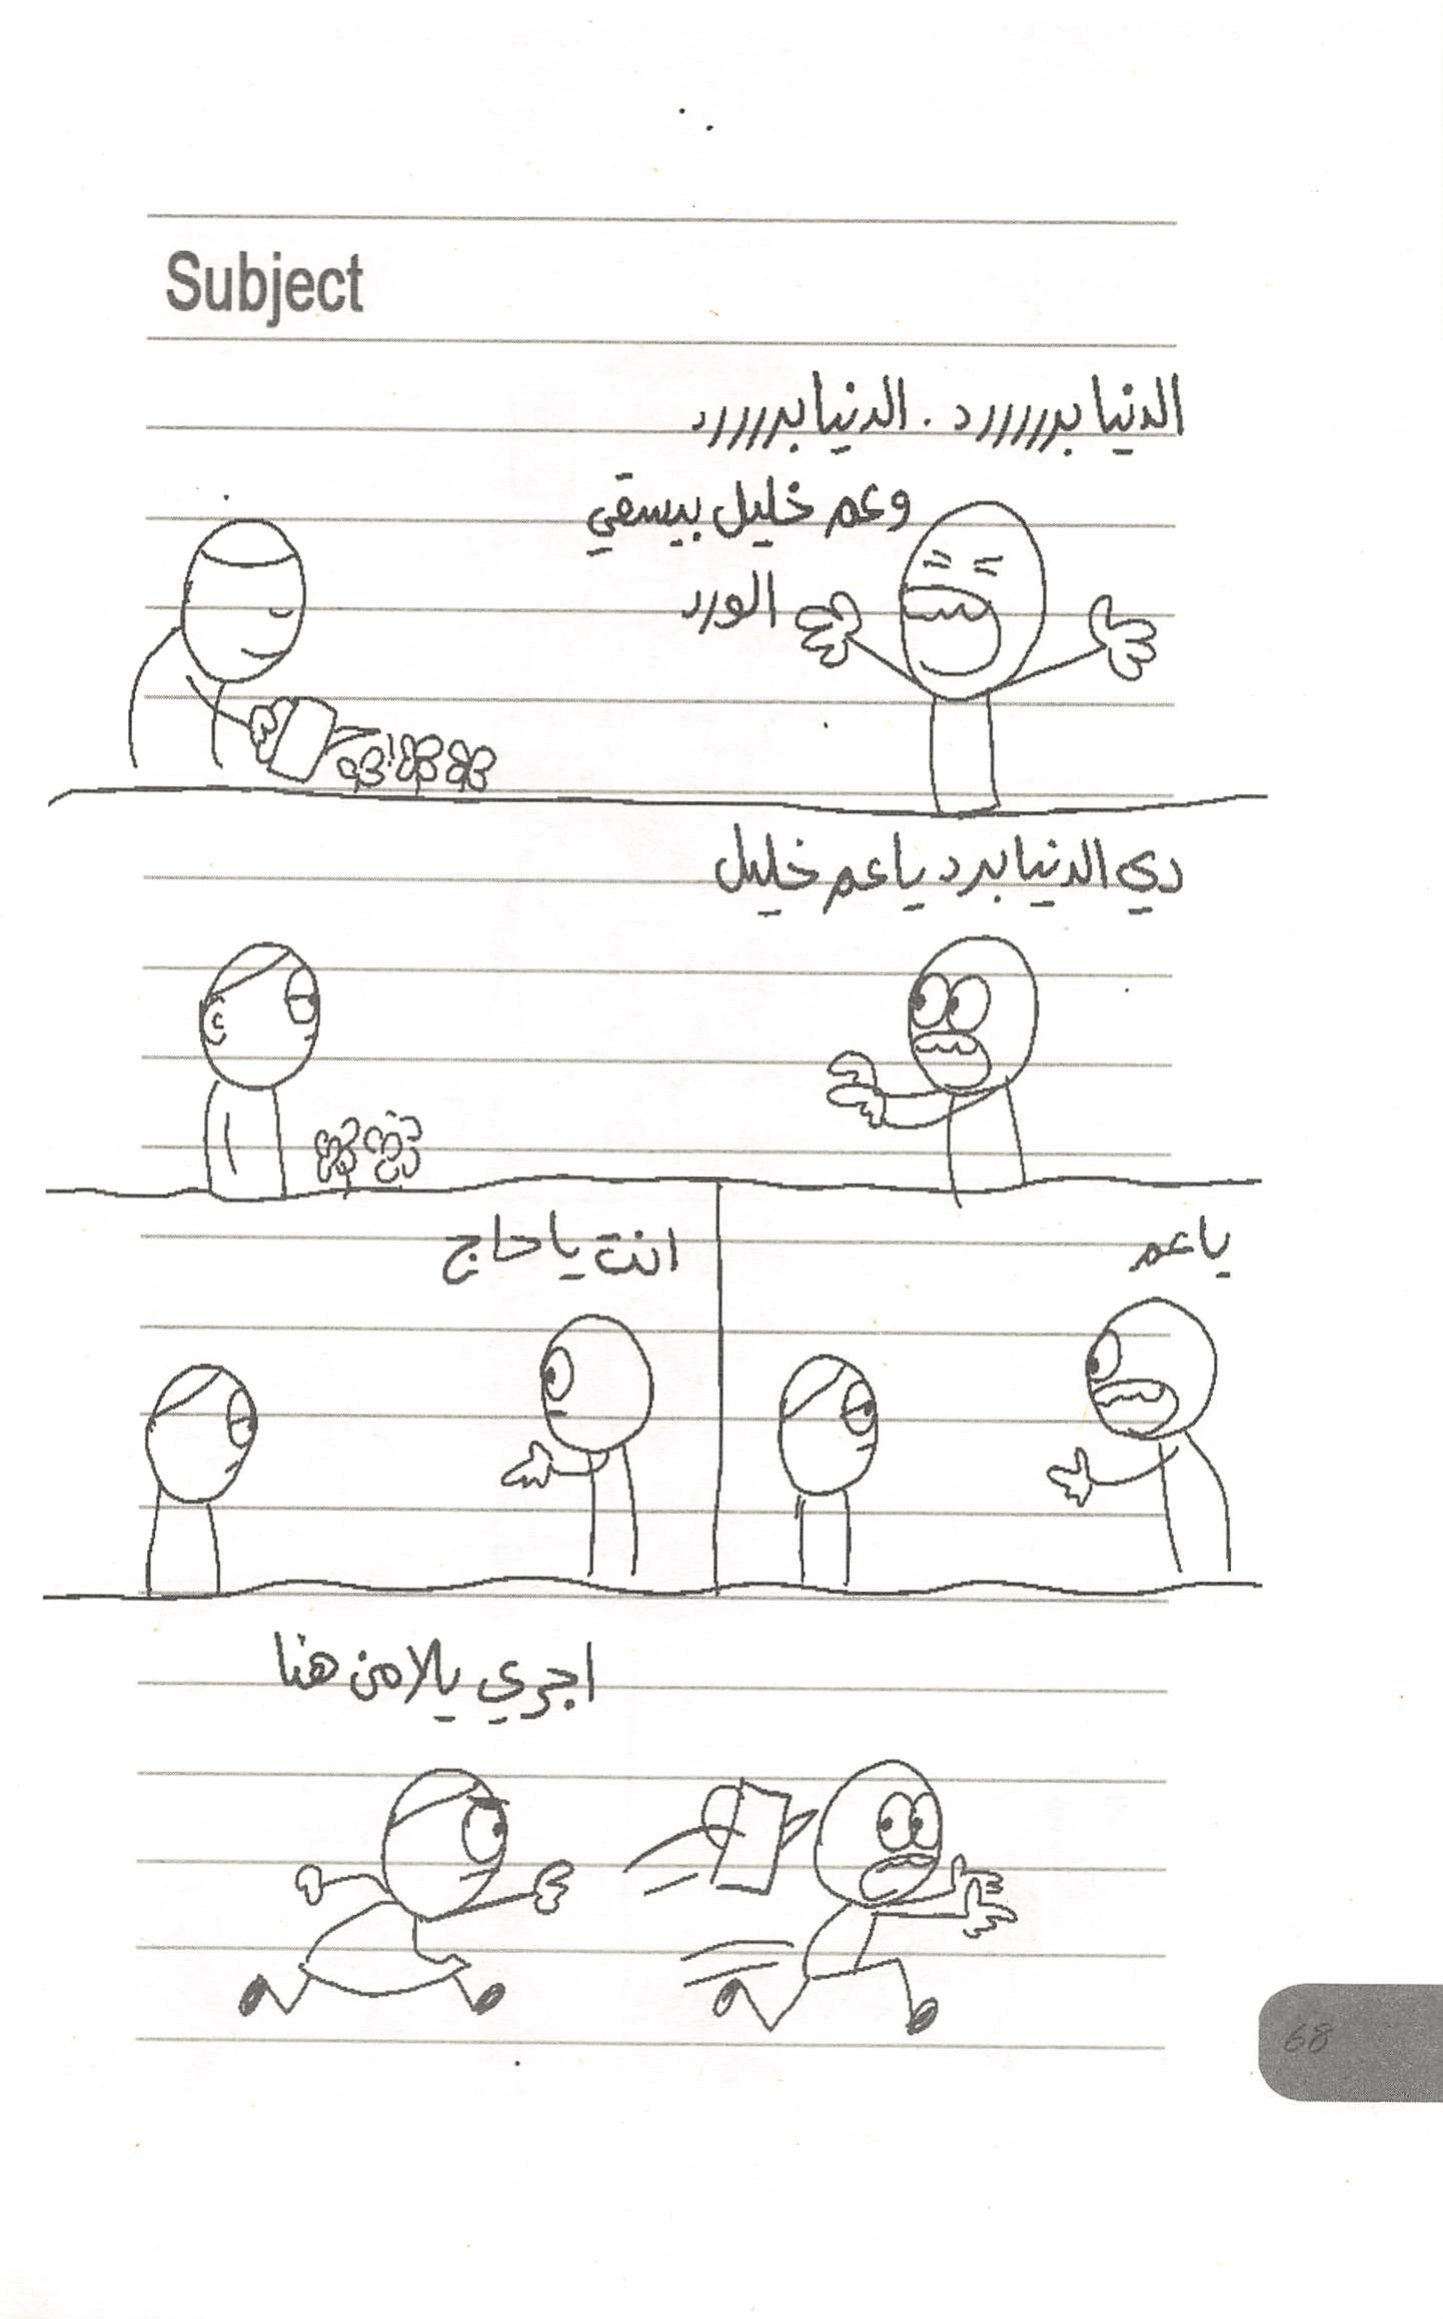 Subject
الدنيا بررررررد . الدنيا بررررررد
وعم خليل بيسقي
الورد
دي الدنيا برد يا عم خليل
يا عم
انت يا حاج
اجري يلا من هنا
68